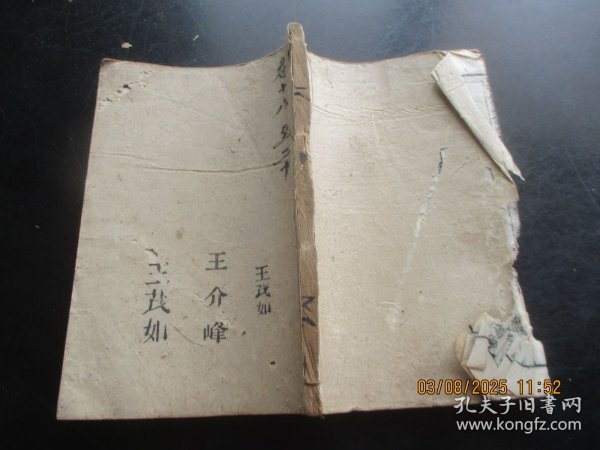 卷十八至二十
王茂如
王介峰
王茂如
03/08/2025 11:52
孔夫子旧书网
www.kongfz.com